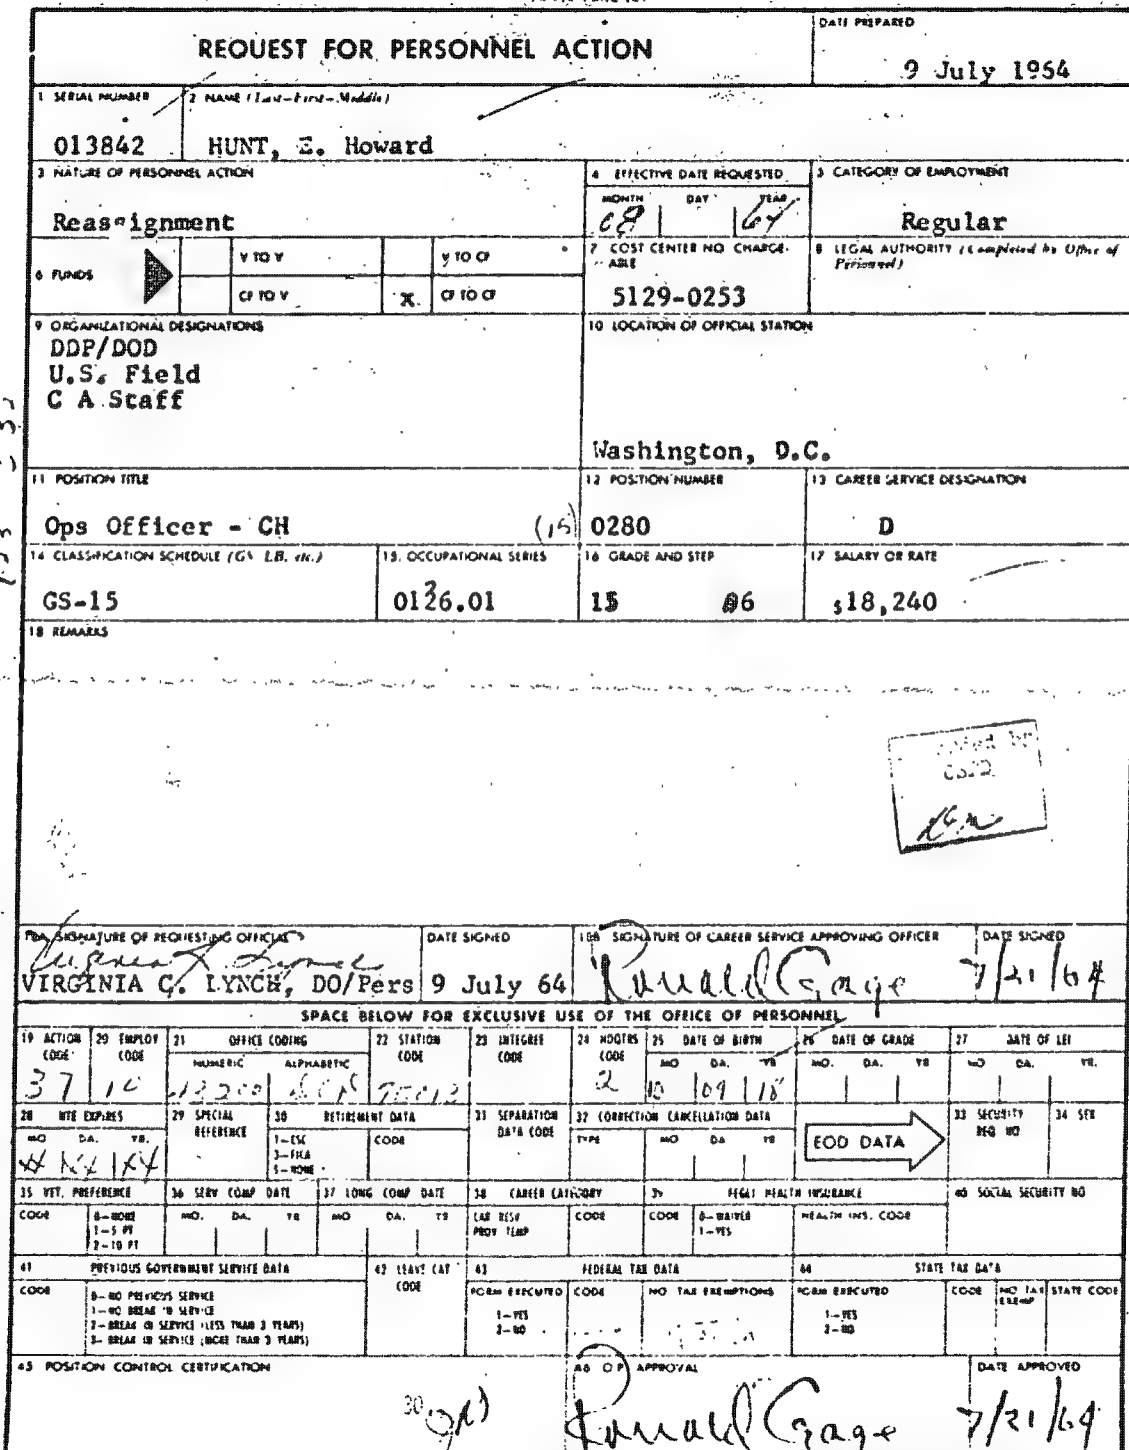 REQUEST FOR PERSONNEL ACTION
DATE PREPARED
9 July 1964
1 SERIAL NUMBER
2 NAME (Last-First-Middle)
013842
HUNT, E. Howard
3 NATURE OF PERSONNEL ACTION
4 EFFECTIVE DATE REQUESTED
5 CATEGORY OF EMPLOYMENT
MONTH DAY YEAR
Reassignment
64
Regular
6 FUNDS
V TO V
V TO CF
CF TO V
X
CF TO CF
7 COST CENTER NO. CHARGE-
ABLE
5129-0253
8 LEGAL AUTHORITY (Completed by Office of
Personnel)
9 ORGANIZATIONAL DESIGNATIONS
DDP/DOD
U.S. Field
C A Staff
10 LOCATION OF OFFICIAL STATION
Washington, D.C.
11 POSITION TITLE
12 POSITION NUMBER
13 CAREER SERVICE DESIGNATION
Ops Officer - CH
(15)
0280
D
14 CLASSIFICATION SCHEDULE (GS, LB, etc.)
15. OCCUPATIONAL SERIES
16 GRADE AND STEP
17 SALARY OR RATE
GS-15
0126.01
15 6
$18,240
18 REMARKS
18A. SIGNATURE OF REQUESTING OFFICIAL
DATE SIGNED
18B SIGNATURE OF CAREER SERVICE APPROVING OFFICER
DATE SIGNED
VIRGINIA C. LYNCH, DO/Pers
9 July 64
Ronald Gage
7/21/64
SPACE BELOW FOR EXCLUSIVE USE OF THE OFFICE OF PERSONNEL
19 ACTION CODE
20 EMPLOY CODE
21 OFFICE CODING
NUMERIC ALPHABETIC
22 STATION CODE
23 INTEGREE CODE
24 HDQTRS CODE
25 DATE OF BIRTH
MO DA. YR
26 DATE OF GRADE
MO. DA. YR
27 DATE OF LEI
MO DA. YR.
37
10
2
10 09 18
28 NTE EXPIRES
MO DA. YR.
29 SPECIAL REFERENCE
30 RETIREMENT DATA
1-CSC
3-FICA
5-NONE
CODE
31 SEPARATION DATA CODE
32 CORRECTION CANCELLATION DATA
TYPE MO DA YR
EOD DATA
33 SECURITY REQ NO
34 SEX
35 VET. PREFERENCE
CODE
0-NONE
1-5 PT
2-10 PT
36 SERV COMP DATE
MO. DA. YR
37 LONG COMP DATE
MO DA. YR
38 CAREER CATEGORY
CAR RESV
PROV TEMP
CODE
39 FEGLI HEALTH INSURANCE
CODE
0-WAIVER
1-YES
HEALTH INS. CODE
40 SOCIAL SECURITY NO
41 PREVIOUS GOVERNMENT SERVICE DATA
CODE
0-NO PREVIOUS SERVICE
1-NO BREAK IN SERVICE
2-BREAK IN SERVICE (LESS THAN 3 YEARS)
3-BREAK IN SERVICE (MORE THAN 3 YEARS)
42 LEAVE CAT CODE
43 FEDERAL TAX DATA
FORM EXECUTED
1-YES
2-NO
CODE
NO TAX EXEMPTIONS
44 STATE TAX DATA
FORM EXECUTED
1-YES
2-NO
CODE
NO TAX EXEMP
STATE CODE
45 POSITION CONTROL CERTIFICATION
46 O P APPROVAL
DATE APPROVED
Ronald Gage
7/21/64